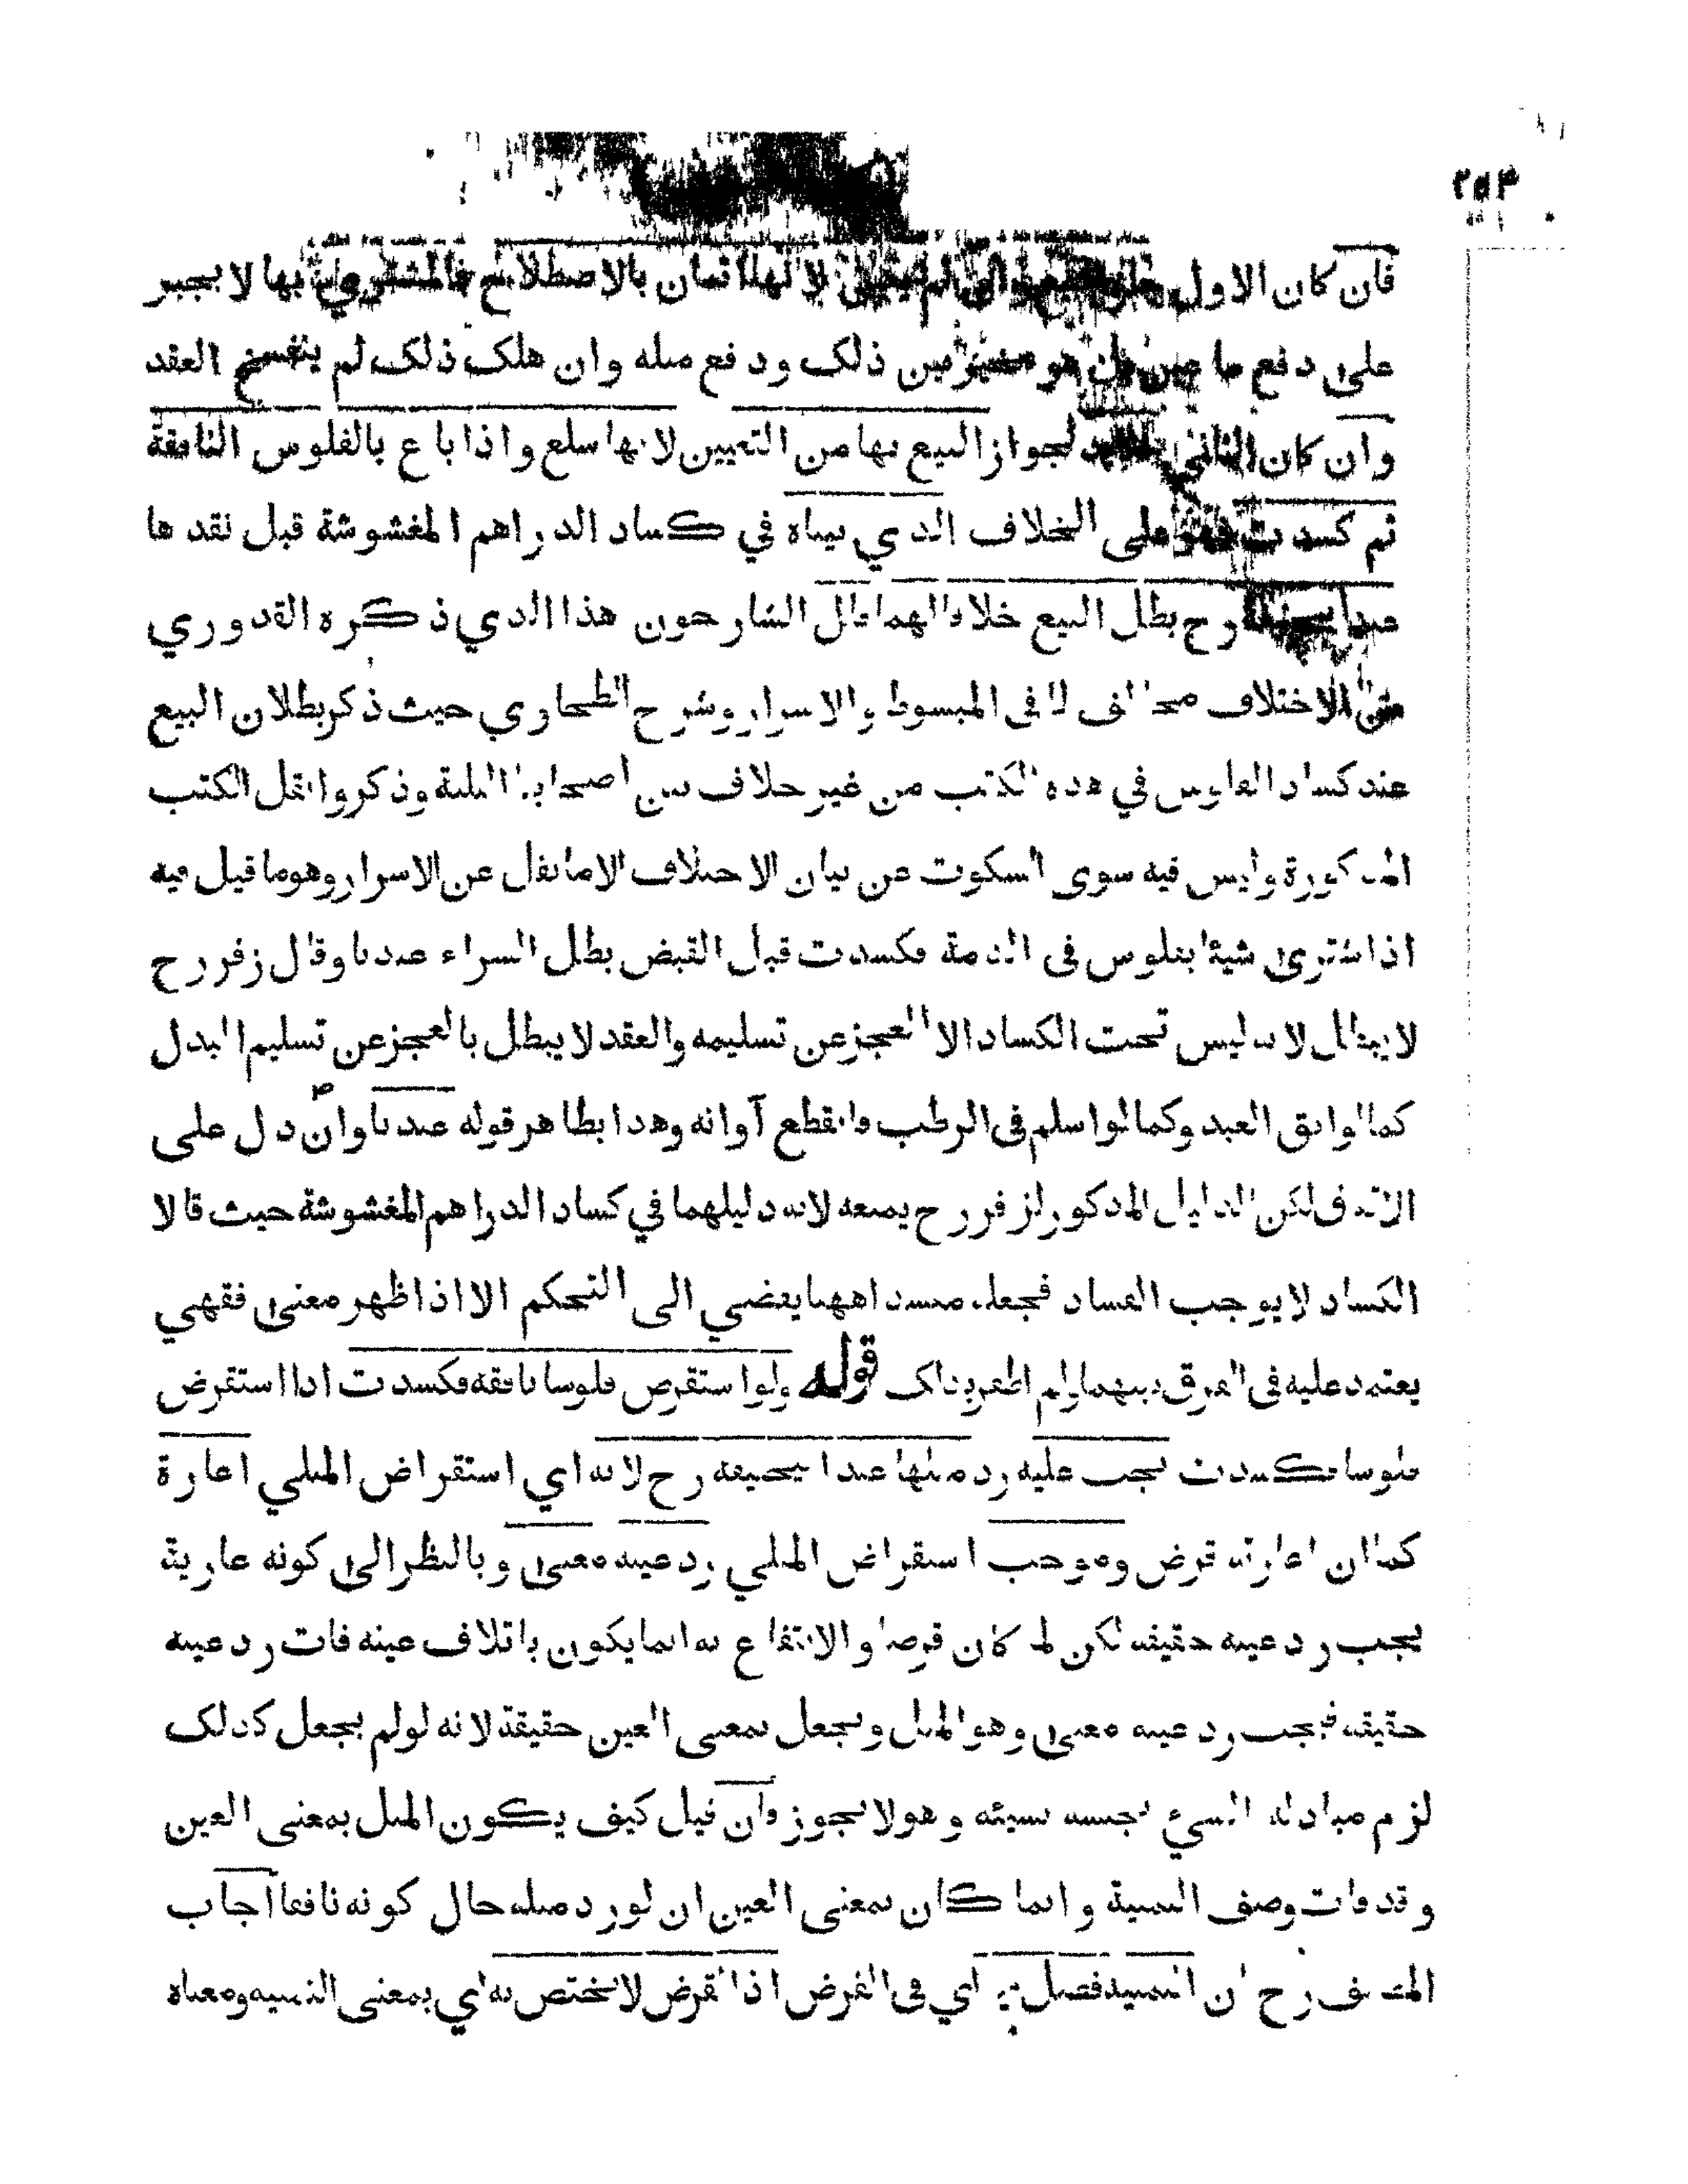 ٢٥٤
فان كان الاول جاز البيع بها وان لم يتعين لانها اثمان بالاصطلاح فالمشتري بها لا يجبر
على دفع ما عين بل هو مخير بين ذلك ودفع مثله وان هلك ذلك لم ينفسخ العقد
وان كان الثاني فلابد لجواز البيع بها من التعيين لانها سلع واذا باع بالفلوس النافقة
ثم كسدت فهو على الخلاف الذي بيناه في كساد الدراهم المغشوشة قبل نقدها
عند ابيحنيفة رح بطل البيع خلافا لهما قال الشارحون هذا الذي ذكره القدوري
من الاختلاف مخالف لما في المبسوط والاسرار وشرح الطحاوي حيث ذكر بطلان البيع
عند كساد الفلوس في هذه الكتب من غير خلاف بين اصحابنا الثلثة وذكروا نقل الكتب
المذكورة وليس فيه سوى السكوت عن بيان الاختلاف الا ما نقل عن الاسرار وهو ما قيل فيه
اذا اشترى شيئا بفلوس في الذمة فكسدت قبل القبض بطل الشراء عندنا وقال زفر رح
لا يبطل لانه ليس تحت الكساد الا العجز عن تسليمه والعقد لا يبطل بالعجز عن تسليم البدل
كما لو ابق العبد وكما لو اسلم في الرطب فانقطع آوانه وهذا بظاهر قوله عندنا وان دل على
الاتفاق لكن الدليل المذكور لزفر رح يمنعه لانه دليلهما في كساد الدراهم المغشوشة حيث قالا
الكساد لا يوجب الفساد فجعله مفسدا ههنا يفضي الى التحكم الا اذا ظهر معنى فقهي
يعتمد عليه في الفرق بينهما ولم اظفر بذلك قوله ولو استقرض فلوسا نافقه فكسدت اذا استقرض
فلوسا فكسدت يجب عليه رد مثلها عند ابيحنيفه رح لانه اي استقراض المثلي اعارة
كما ان اعارته قرض وموجب استقراض المثلي رد عينه معنى وبالنظر الى كونه عارية
يجب رد عينه حقيقه لكن لما كان قرضا والانتفاع به انما يكون باتلاف عينه فات رد عينه
حقيقه فيجب رد عينه معنى وهو المثل ويجعل بمعنى العين حقيقة لانه لو لم يجعل كذلك
لزم مبادلة الشيء بجنسه نسيئه وهو لا يجوز فان قيل كيف يكون المثل بمعنى العين
وقد فات وصف الثمنية وانما كان بمعنى العين ان لو رد مثله حال كونه نافقا اجاب
المصنف رح ان الثمنيه فضل فيه اي في القرض اذ القرض لا يختص به اي بمعنى الثمنيه ومعناه